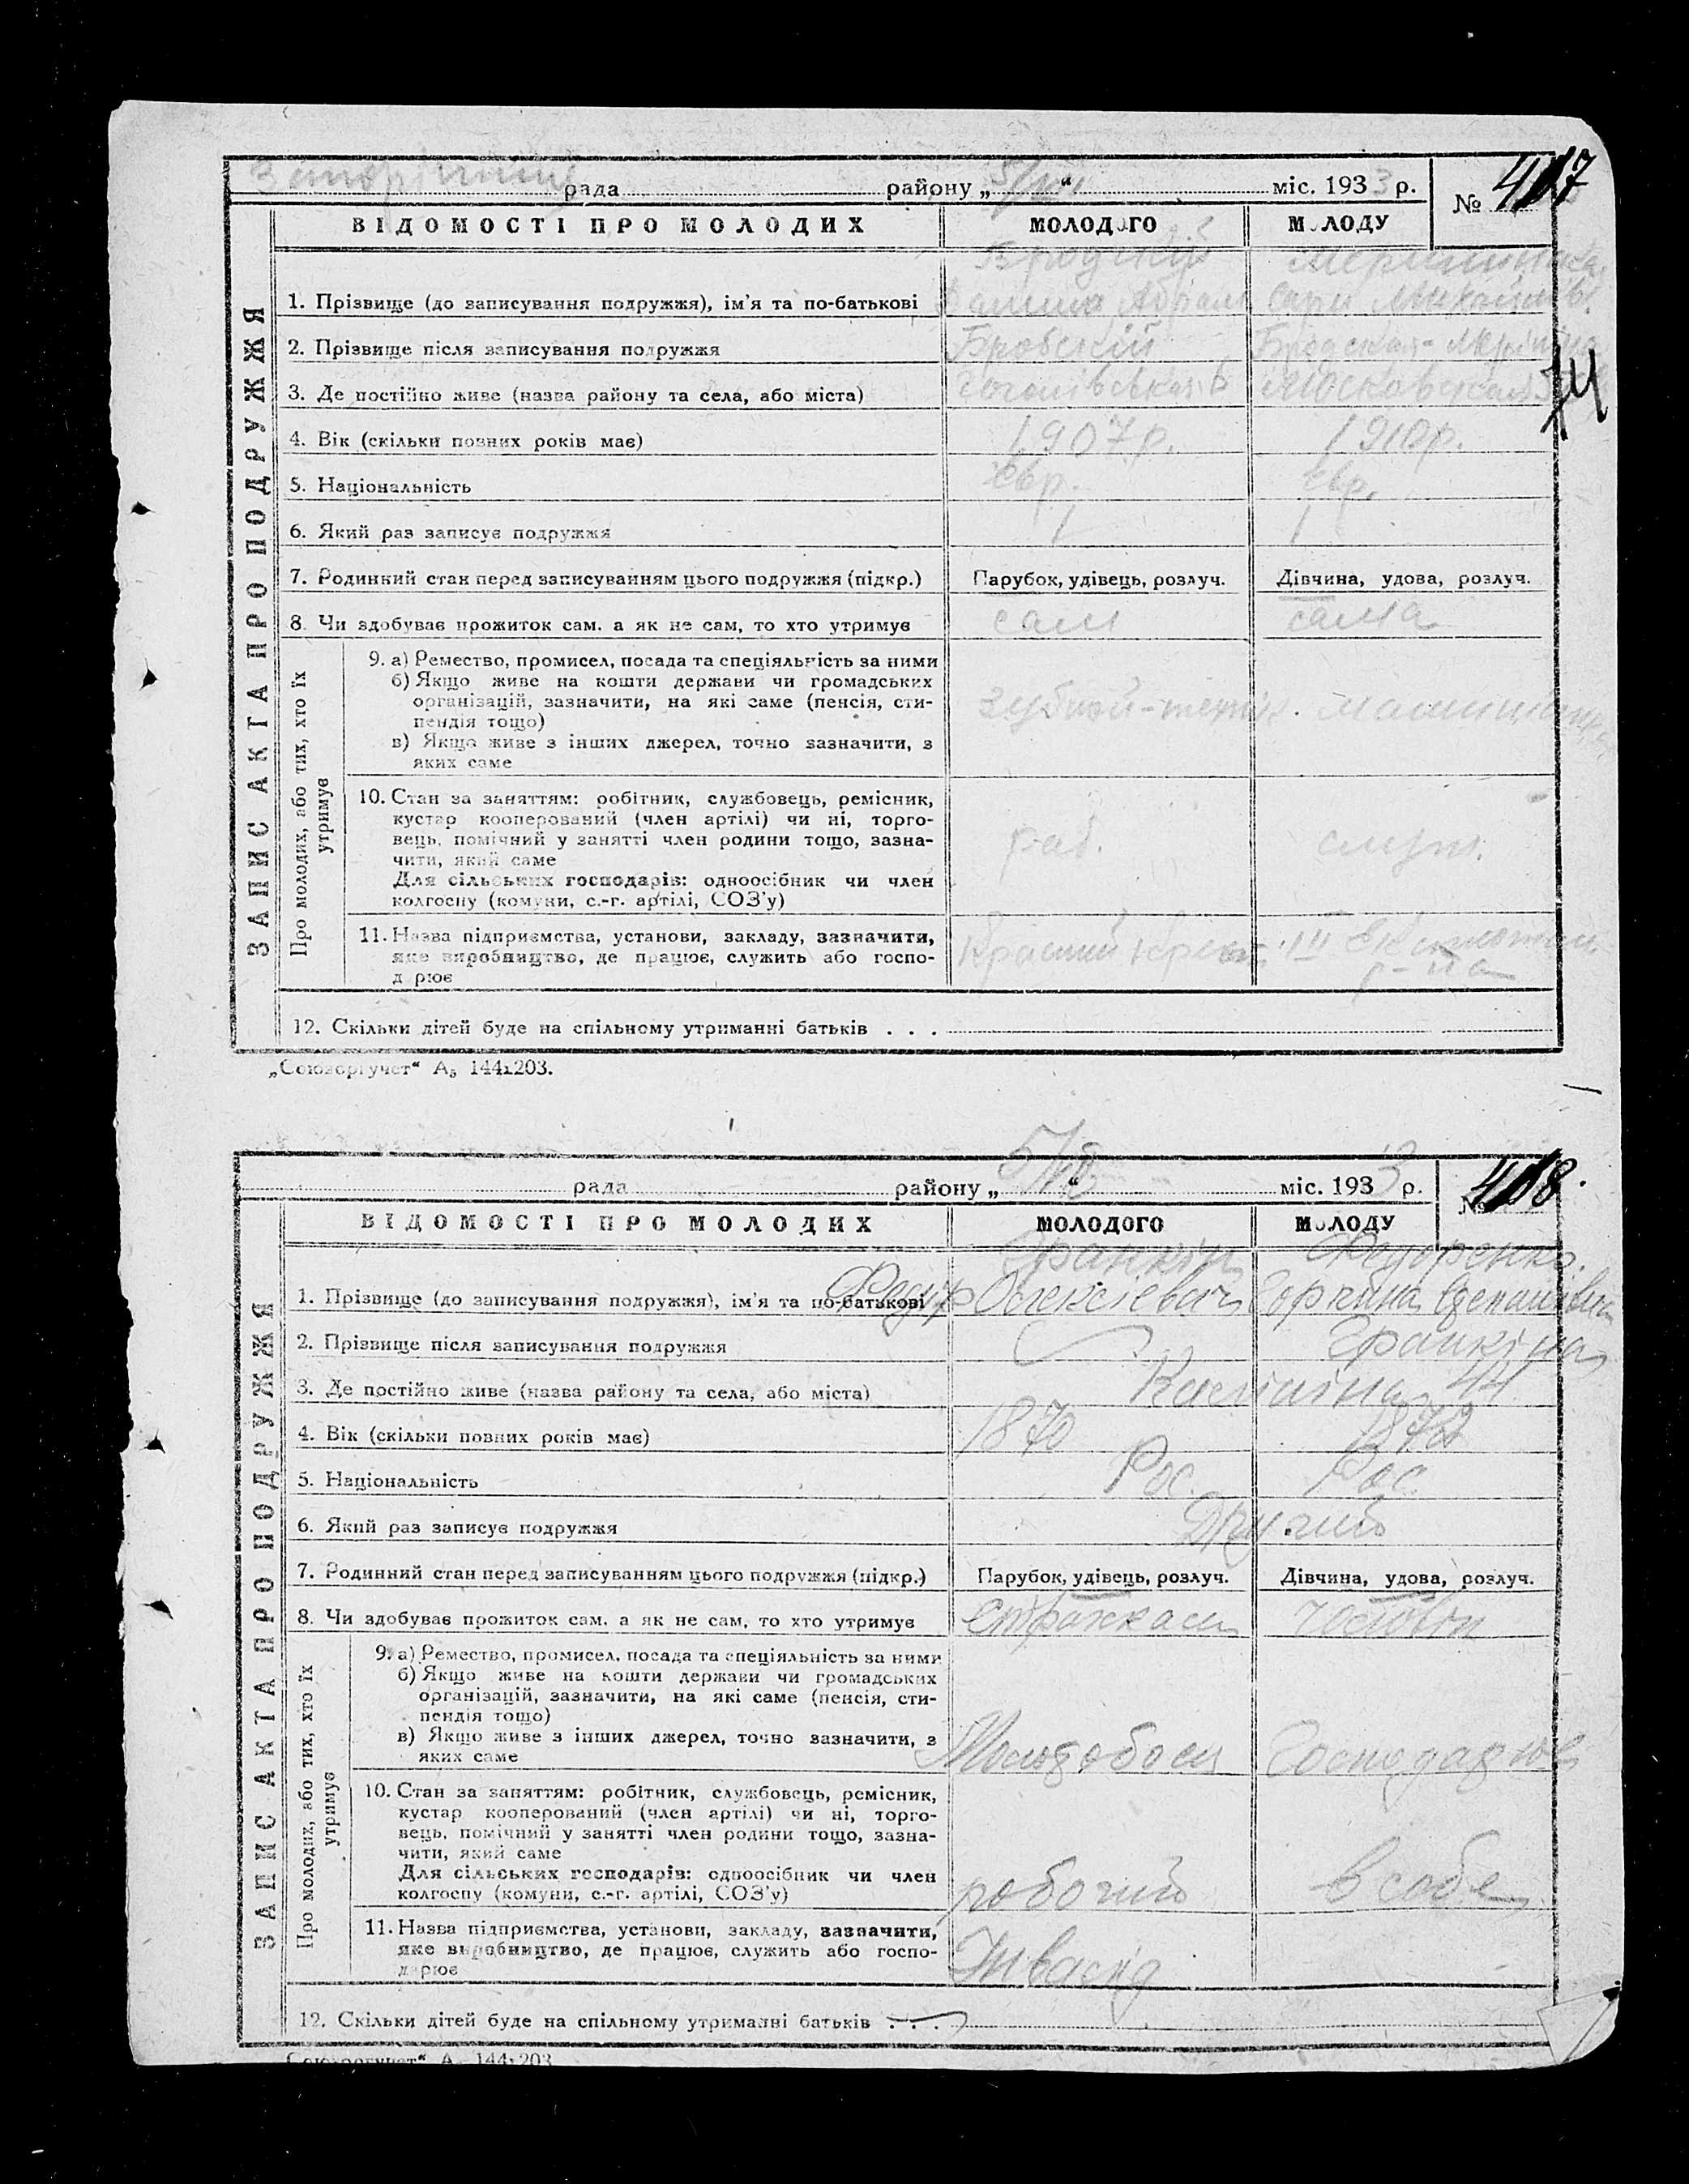 рада району „5/VII“ міс. 1933 р.
№ 417
ВІДОМОСТІ ПРО МОЛОДИХ МОЛОДОГО МОЛОДУ
Бродский
1. Прізвище (до записування подружжя), ім'я та по-батькові
2. Прізвище після записування подружжя
3. Де постійно живе (назва району та села, або міста) Московская
74
4. Вік (скільки повних років має) 1907 р. 1910 р.
5. Національність Євр. Євр.
6. Який раз записує подружжя 1 1
7. Родинний стан перед записуванням цього подружжя (підкр.) Парубок, удівець, розлуч. Дівчина, удова, розлуч.
8. Чи здобуває прожиток сам. а як не сам, то хто утримує сам сама
ЗАПИС АКТА ПРО ПОДРУЖЖЯ
Про молодих, або тих, хто їх утримує
9. а) Ремество, промисел, посада та спеціяльність за ними
б) Якщо живе на кошти держави чи громадських
організацій, зазначити, на які саме (пенсія, сти-
пендія тощо) зубной-техник.
в) Якщо живе з інших джерел, точно зазначити, з
яких саме
10. Стан за заняттям: робітник, службовець, ремісник,
кустар кооперований (член артілі) чи ні, торго-
вець, помічний у занятті член родини тощо, зазна- раб. служ.
чити, який саме
Для сільських господарів: одноосібник чи член
колгоспу (комуни, с.-г. артілі, СОЗ'у)
11. Назва підприємства, установи, закладу, зазначити, Красний Крест
яке виробництво, де працює, служить або госпо-
дарює
12. Скільки дітей буде на спільному утриманні батьків . . .
„Союзоргучет“ А₅ 144х203.
рада району „5/VII“ міс. 1933 р.
№ 418
ВІДОМОСТІ ПРО МОЛОДИХ МОЛОДОГО МОЛОДУ
Гранкін Федоренко
1. Прізвище (до записування подружжя), ім'я та по-батькові Федір Олексієвич Степанівна
2. Прізвище після записування подружжя Гранкіна
3. Де постійно живе (назва району та села, або міста) Калініна 44
4. Вік (скільки повних років має) 1870 1872
5. Національність Рос. Рос.
6. Який раз записує подружжя Другий
7. Родинний стан перед записуванням цього подружжя (підкр.) Парубок, удівець, розлуч. Дівчина, удова, розлуч.
8. Чи здобуває прожиток сам. а як не сам, то хто утримує Страхкаса чоловік
ЗАПИС АКТА ПРО ПОДРУЖЖЯ
Про молодих, або тих, хто їх утримує
9. а) Ремество, промисел, посада та спеціяльність за ними
б) Якщо живе на кошти держави чи громадських
організацій, зазначити, на які саме (пенсія, сти-
пендія тощо)
в) Якщо живе з інших джерел, точно зазначити, з
яких саме Молотобоец
10. Стан за заняттям: робітник, службовець, ремісник,
кустар кооперований (член артілі) чи ні, торго-
вець, помічний у занятті член родини тощо, зазна-
чити, який саме
Для сільських господарів: одноосібник чи член
колгоспу (комуни, с.-г. артілі, СОЗ'у) робочий в себе
11. Назва підприємства, установи, закладу, зазначити,
яке виробництво, де працює, служить або госпо-
дарює Інвалід
12. Скільки дітей буде на спільному утриманні батьків . . .
„Союзоргучет“ А₅ 144х203